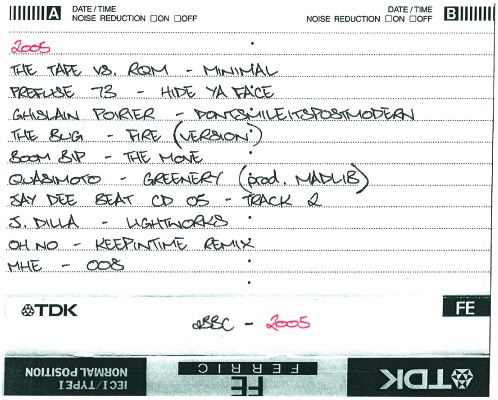 A DATE / TIME
NOISE REDUCTION □ON □OFF
DATE / TIME B
NOISE REDUCTION □ON □OFF
2005
THE TAPE VS. RQM - MINIMAL
PREFUSE 73 - HIDE YA FACE
GHISLAIN POIRIER - DONTSMILEITSPOSTMODERN
THE BUG - FIRE (VERSION)
BOOM BIP - THE MOVE
QUASIMOTO - GREENERY (prod. MADLIB)
JAY DEE BEAT CD 05 - TRACK 2
J. DILLA - LIGHTWORKS
OH NO - KEEPINTIME REMIX
MHE - 008
TDK
FE
2BBC - 2005
IECI/TYPE I
NORMAL POSITION
FE
FERRIC
TDK